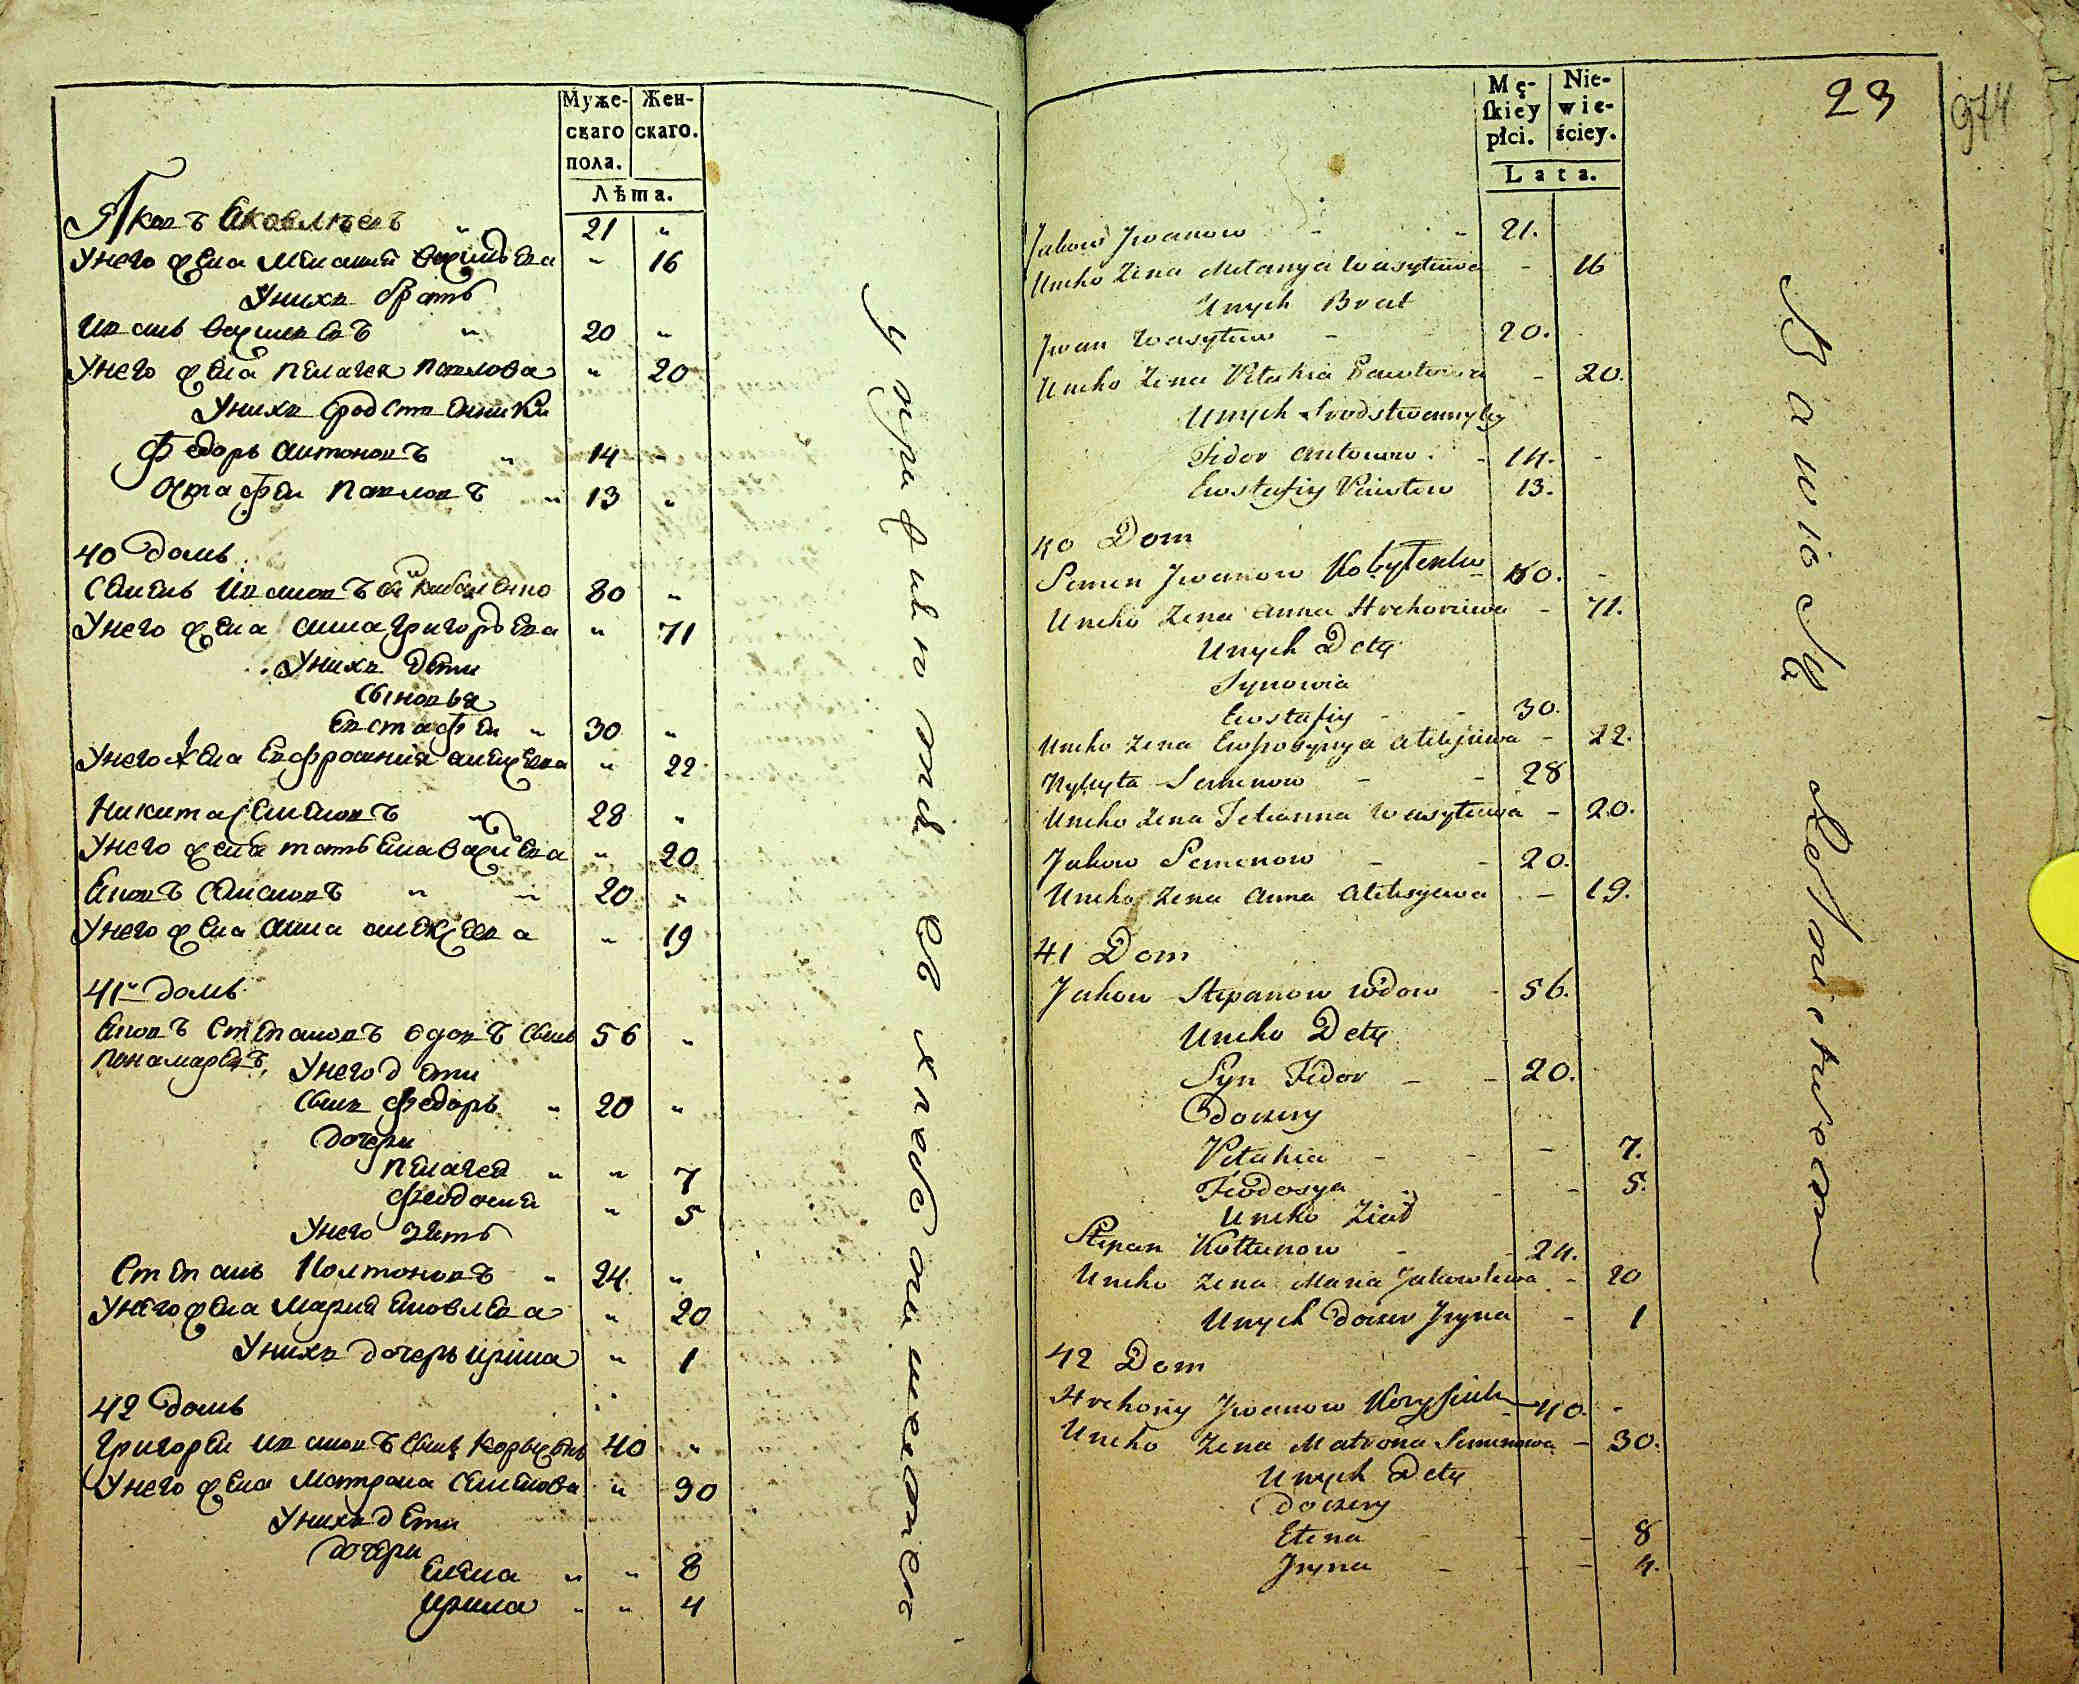 Муже-
скаго
пола.
Жен-
скаго.
Лѣта.
Яковъ Яковлевъ " 21 "
Унего жена Меланія Васильева " 16
Унихъ братъ
Иванъ Васильевъ " 20 "
Унего жена Пелагея Павлова " 20
Унихъ сродственники
Федоръ Антоновъ " 14 "
Остафей Павловъ " 13 "
40 домъ
Семенъ Ивановъ 80 "
Унего жена Анна Григорьева " 71
Унихъ дети
Сыновья
Евстафей " 30 "
Унего жена Евфросинія " 22
Никита Семеновъ " 28 "
Унего жена Татьяна Васильева " 20
Яковъ Семеновъ " " 20 "
Унего жена Анна Алексеева " 19
41й домъ
Яковъ Степановъ вдовъ сынъ 56 "
Панамаревъ, Унего дети
Сынъ Федоръ " 20 "
Дочери
Пелагея " " 7
Феодосия " 5
Унего зять
Степанъ Колтоновъ " 24 "
Унего жена Мария Яковлева " 20
Унихъ дочерь Ирина " 1
42 домъ
Григорей Ивановъ сынъ 40 "
Унего жена Матрона Семенова " 30
Унихъ дети
дочери
Елена " " 8
Ирина " " 4
Mę-
skiey
płci.
Nie-
wie-
ściey.
Lata.
23
974
Jakow Jwanow - - 21.
Uneho Zena Melanya Wasylewa - 16
Unych Brat
Jwan Wasylew - 20.
Uneho Zena Pelahia Pawlowa - 20.
Unych Srodstwennyky
Fedor Antonow. - 14. -
Ewstafiy Pawlow 13.
40 Dom
Semen Jwanow Kobyłenko 80. -
Uneho Zena Anna Hrehoriewa - 71.
Unych Dety
Synowia
Ewstafiy - - 30.
Uneho Zena Ewfrosynya Alexiewa - 22.
Nykyta Semenow - - 28
Uneho Zena Tetianna Wasylewa - 20.
Jakow Semenow - - 20.
Uneho Zena Anna Alexsyewa - 19.
41 Dom
Jakow Stepanow wdow - 56.
Uneho Dety
Syn Fedor - - 20.
Doczery
Pelahia - - - 7.
Feodosya - - - 5.
Uneho Ziať
Stepan Kołtunow - - 24.
Uneho Zena Maria Jakowlewa - 20
Unych Doczer Jryna - 1
42 Dom
Hrehory Jwanow - 40. -
Uneho Zena Matrona Semenowa - 30.
Unych Dety
Doczery
Elena - - - 8
Jryna - - - 4.